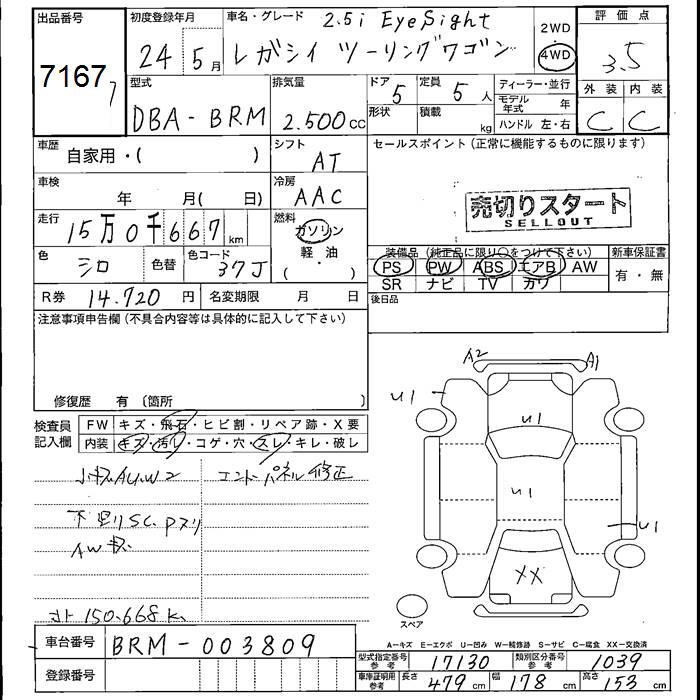 出品番号
7167
初度登録年月
24 5月
車名・グレード 2.5i EyeSight
レガシィ ツーリングワゴン
2WD
4WD
評価点
3.5
外装 内装
C C
型式
DBA-BRM
排気量
2.500cc
ドア 5
形状
定員 5人
積載 kg
ディーラー・並行
モデル年式 年
ハンドル 左・右
車歴
自家用・( )
シフト
AT
セールスポイント(正常に機能するものに限ります)
売切りスタート
SELLOUT
車検
年 月( 日)
冷房
AAC
走行
15万0千667km
燃料
ガソリン
軽・油
( ・ )
色
シロ
色替
色コード
37J
装備品(純正品に限り○をつけて下さい)
PS PW ABS エアB AW
SR ナビ TV カワ
新車保証書
有・無
R券 14.720円
名変期限 月 日
後日品
注意事項申告欄(不具合内容等は具体的に記入して下さい)
修復歴 有〔箇所 〕
検査員記入欄
FW キズ・飛石・ヒビ割・リペア跡・X要
内装 キズ・汚レ・コゲ・穴・スレ・キレ・破レ
エンドパネル修正
AWキズ
150.668k
A2 A1
U1
U1
U1
U1
XX
スペア
A-キズ E-エクボ U-凹み W-補修跡 S-サビ C-腐食 XX-交換済
車台番号 BRM-003809
登録番号
型式指定番号参考 17130
類別区分番号参考 1039
車庫証明用参考 長さ 479cm 幅 178cm 高さ 153cm